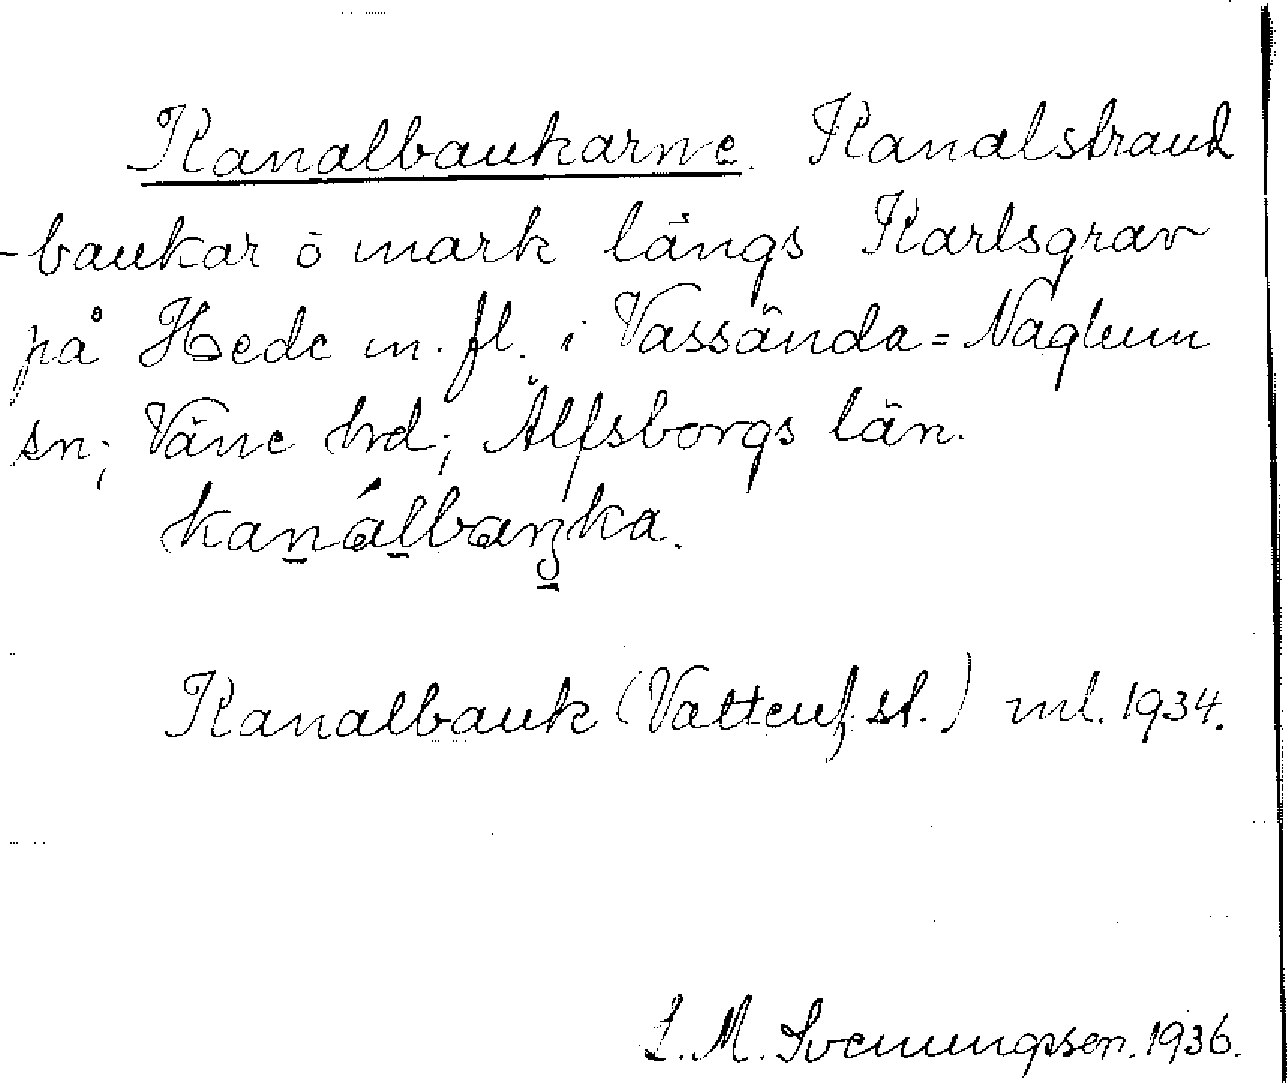 Kanalbankarne. Kanalstrand
-bankar o mark längs Karlsgrav
på Hede m. fl. i Vassända=Naglum
sn; Väne hrd; Älfsborgs län.
kanálbaŋka.
Kanalbank (Vattenf. st.) ml. 1934.
S. M. Svenungsson. 1936.